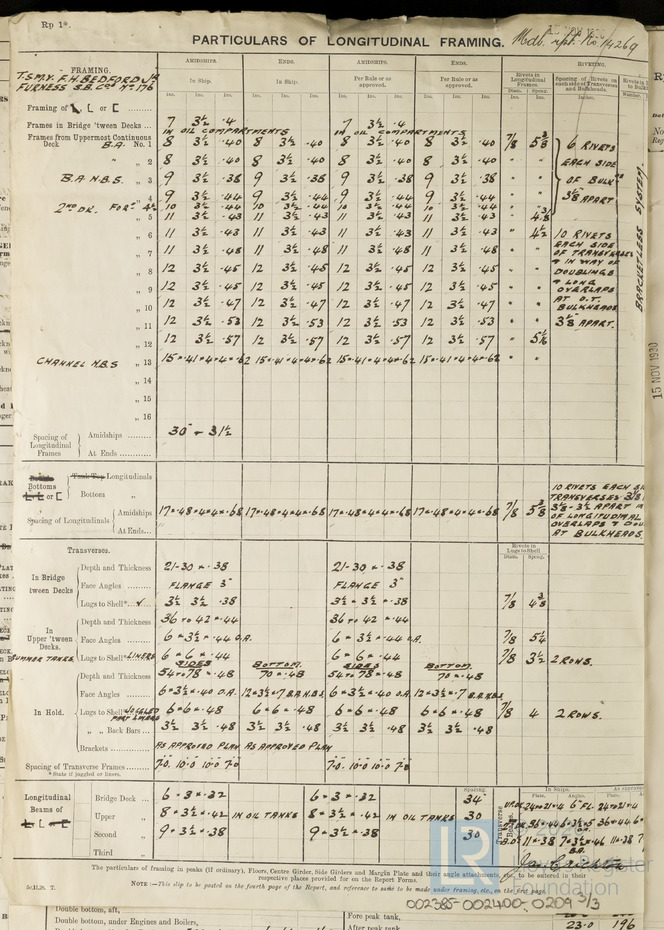 Rp 1*.
PARTICULARS OF LONGITUDINAL FRAMING.
Mdb. rpt. No 14269
FRAMING.
T.S.M.V. F.H. BEDFORD Jr
FURNESS S.B. Co No 176
AMIDSHIPS. ENDS. AMIDSHIPS. ENDS.
In Ship. In Ship. Per Rule or as approved. Per Rule or as approved.
Rivets in Longitudinal Frames.
RIVETING.
Spacing of Rivets on each side of Transverses and Bulkheads.
Ins. Ins. Ins. Ins. Ins. Ins. Ins. Ins. Ins. Ins. Ins. Ins. Diam. Spcng.
Framing of L, L or [
Frames in Bridge 'tween Decks ... 7 3½ .4 7 3½ .4
IN OIL COMPARTMENTS IN OIL COMPARTMENTS
Frames from Uppermost Continuous
Deck B.A. No. 1 8 3½ .40 8 3½ .40 8 3½ .40 8 3½ .40 7/8 5⅜
" 2 8 3½ .40 8 3½ .40 8 3½ .40 8 3½ .40 " "
B.A. N.B.S. " 3 9 3½ .38 9 3½ .38 9 3½ .38 9 3½ .38 " "
" 4 9 3½ .44 9 3½ .44 9 3½ .44 9 3½ .44 " "
2ND DK. FOR 4½ 10 3½ .44 10 3½ .44 10 3½ .44 10 3½ .44
" 5 11 3½ .43 11 3½ .43 11 3½ .43 11 3½ .43 "
" 6 11 3½ .43 11 3½ .43 11 3½ .43 11 3½ .43 " 4½
" 7 11 3½ .48 11 3½ .48 11 3½ .48 11 3½ .48 " "
" 8 12 3½ .45 12 3½ .45 12 3½ .45 12 3½ .45 " "
" 9 12 3½ .45 12 3½ .45 12 3½ .45 12 3½ .45 " "
" 10 12 3½ .47 12 3½ .47 12 3½ .47 12 3½ .47 " "
" 11 12 3½ .53 12 3½ .53 12 3½ .53 12 3½ .53 " "
" 12 12 3½ .57 12 3½ .57 12 3½ .57 12 3½ .57 "
CHANNEL N.B.S " 13 15 × .41 × 4 × 4 × .62 15 × .41 × 4 × 4 × .62 15 × .41 × 4 × 4 × .62 15 × .41 × 4 × 4 × .62 " "
" 14
" 15
" 16
6 RIVETS
EACH SIDE
OF BULK
3⅛ APART
10 RIVETS
EACH SIDE
OF TRANSVERSES
& IN WAY OF
DOUBLINGS
& LONG
OVERLAPS
AT O.T.
BULKHEADS
3⅛ APART.
BRACKETLESS SYSTEM.
15 NOV 1930
Spacing of Longitudinal Frames
Amidships ......... 30" - 31½
At Ends ...
Bottoms
L, L or [
Tank Top Longitudinals
Bottom "
Spacing of Longitudinals
Amidships 17 × .48 × 4 × 4 × .68 17 × .48 × 4 × 4 × .68 17 × .48 × 4 × 4 × .68 17 × .48 × 4 × 4 × .68 7/8 5⅜
At Ends...
10 RIVETS EACH
TRANSVERSES 3⅛
OF LONGITUDINAL
AT BULKHEADS.
Transverses.
Rivets in Lugs to Shell
Diam. Spcng.
In Bridge 'tween Decks
Depth and Thickness 21-30 × .38 21-30 × .38
Face Angles FLANGE 3" FLANGE 3"
Lugs to Shell* 3½ 3½ .38 3½ × 3½ × .38 7/8 4⅜
In Upper 'tween Decks.
SUMMER TANKS.
Depth and Thickness 36 TO 42 × .44 36 TO 42 × .44
Face Angles 6 × 3½ × .44 O.A. 6 × 3½ × .44 O.A. 7/8 5¼
Lugs to Shell* LINERS 6 × 6 × .44 6 × 6 × .44 7/8 3½ 2 ROWS.
SIDES BOTTOM SIDES BOTTOM
In Hold.
Depth and Thickness 54 TO 78 × .48 70 × .48 54 TO 78 × .48 70 × .48
Face Angles 6 × 3½ × .40 O.A. 12 × 3½ × .7 B.A.N.B.S. 6 × 3½ × .40 O.A. 12 × 3½ × .7 B.A.N.B.S.
Lugs to Shell* JOGGLED PART LINERS 6 × 6 × .48 6 × 6 × .48 6 × 6 × .48 6 × 6 × .48 7/8 4 2 ROWS.
" " Back Bars ... 3½ 3½ .48 3½ 3½ .48 3½ 3½ .48 3½ 3½ .48
Brackets ... AS APPROVED PLAN AS APPROVED PLAN
Spacing of Transverse Frames ... 7.0 10.0 10.0 7.0 7.0 10.0 10.0 7.0
* State if joggled or liners.
Longitudinal Beams of L, L or [
Spacing.
Bridge Deck ... 6 × 3 × .32 6 × 3 × .32 34"
Upper " 8 × 3½ × .42 IN OIL TANKS 8 × 3½ × .42 IN OIL TANKS 30
Second " 9 × 3½ × .38 9 × 3½ × .38 30
Third "
Transverse Beams.
In Ships.
Plate. Angles. Plate.
The particulars of framing in peaks (if ordinary), Floors, Centre Girder, Side Girders and Margin Plate and their angle attachments, etc., to be entered in their
respective places provided for on the Report Forms.
NOTE :—This slip to be posted on the fourth page of the Report, and reference to same to be made under framing, etc., on the first page.
002385-002400-0209 3/3
Double bottom, aft,
Double bottom, under Engines and Boilers,
Fore peak tank,
After peak tank, 23.0 196